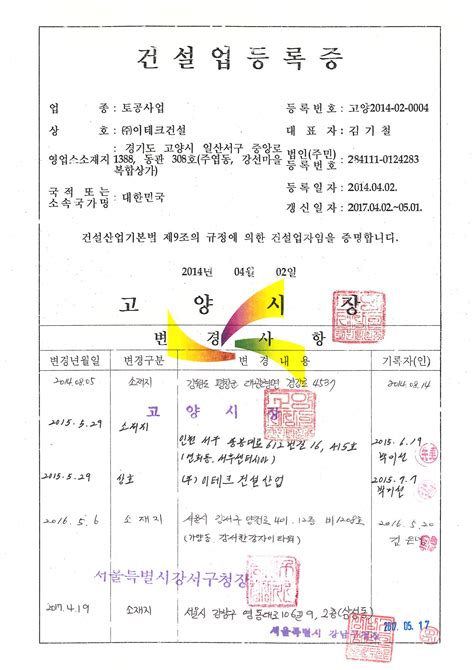 건 설 업 등 록 증
업 종 : 토공사업 등 록 번 호 : 고양2014-02-0004
상 호 : ㈜이테크건설 대 표 자 : 김 기 철
: 경기도 고양시 일산서구 중앙로
영업소재지 1388, 동관 308호(주엽동, 강선마을 법인(주민) : 284111-0124283
복합상가) 등 록 번 호
국 적 또 는 : 대한민국 등 록 일 자 : 2014.04.02.
소속국가명 갱 신 일 자 : 2017.04.02.~05.01.
건설산업기본법 제9조의 규정에 의한 건설업자임을 증명합니다.
2014년 04월 02일
고 양 시 장
변 경 사 항
변경년월일 변경구분 변 경 내 용 기록자(인)
2014.08.05 소재지 강원도 평창군 대관령면 경강로 4539 2014.08.14
고 양 시 장
2015.5.29 소재지 인천 서구 612번길 16, 415호 2015.6.19
2015.5.29 상호 (주)이테크건설산업 2015.7.7
2016.5.6 소재지 서울시 강서구 양천로 401, 12층 비1208호 2016.5.20
(가양동, 강서한강자이타워)
서울특별시강서구청장
2017.4.19 소재지 서울시 강남구 영동대로106길 9, 2층(삼성동) 2017.05.17
서울특별시 강남구청장